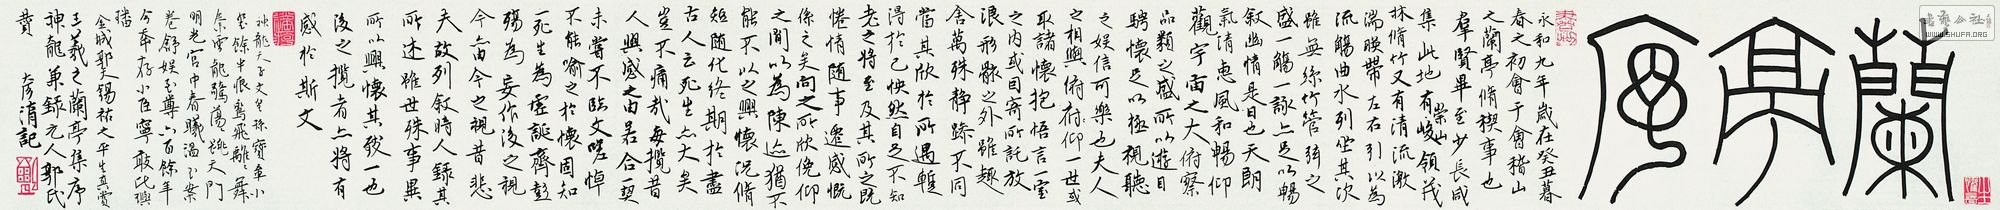 蘭亭序
永和九年歲在癸丑暮
春之初會于會稽山
之蘭亭脩稧事也
羣賢畢至少長咸
集此地有崇山峻領茂
林脩竹又有清流激
湍暎帶左右引以為
流觴曲水列坐其次
雖無絲竹管弦之
盛一觴一詠亦足以暢
敘幽情是日也天朗
氣清惠風和暢仰
觀宇宙之大俯察
品類之盛所以遊目
騁懷足以極視聽
之娛信可樂也夫人
之相與俯仰一世或
取諸懷抱悟言一室
之內或因寄所託放
浪形骸之外雖趣
舍萬殊靜躁不同
當其欣於所遇暫
得於己快然自足不知
老之將至及其所之既
惓情隨事遷感慨
係之矣向之所欣俛仰
之間以為陳迹猶不
能不以之興懷況脩
短隨化終期於盡
古人云死生亦大矣
豈不痛哉每攬昔
人興感之由若合一契
未嘗不臨文嗟悼
不能喻之於懷固知
一死生為虛誕齊彭
殤為妄作後之視
今亦由今之視昔悲
夫故列敘時人錄其
所述雖世殊事異
所以興懷其致一也
後之攬者亦將有
感於斯文
神龍天子文皇孫寶章小
璽餘半痕鸞飛離舞
秦雲龍跳天門
明光宮中春曦溫玉案
卷舒娛至尊六百餘年
今幸存小臣寧敢比璵
璠
金城郭天錫祐之平生真賞
王羲之蘭亭集序
神龍本錄元人郭氏
贊 彥清記
書藝公社
WWW.SHUFA.ORG